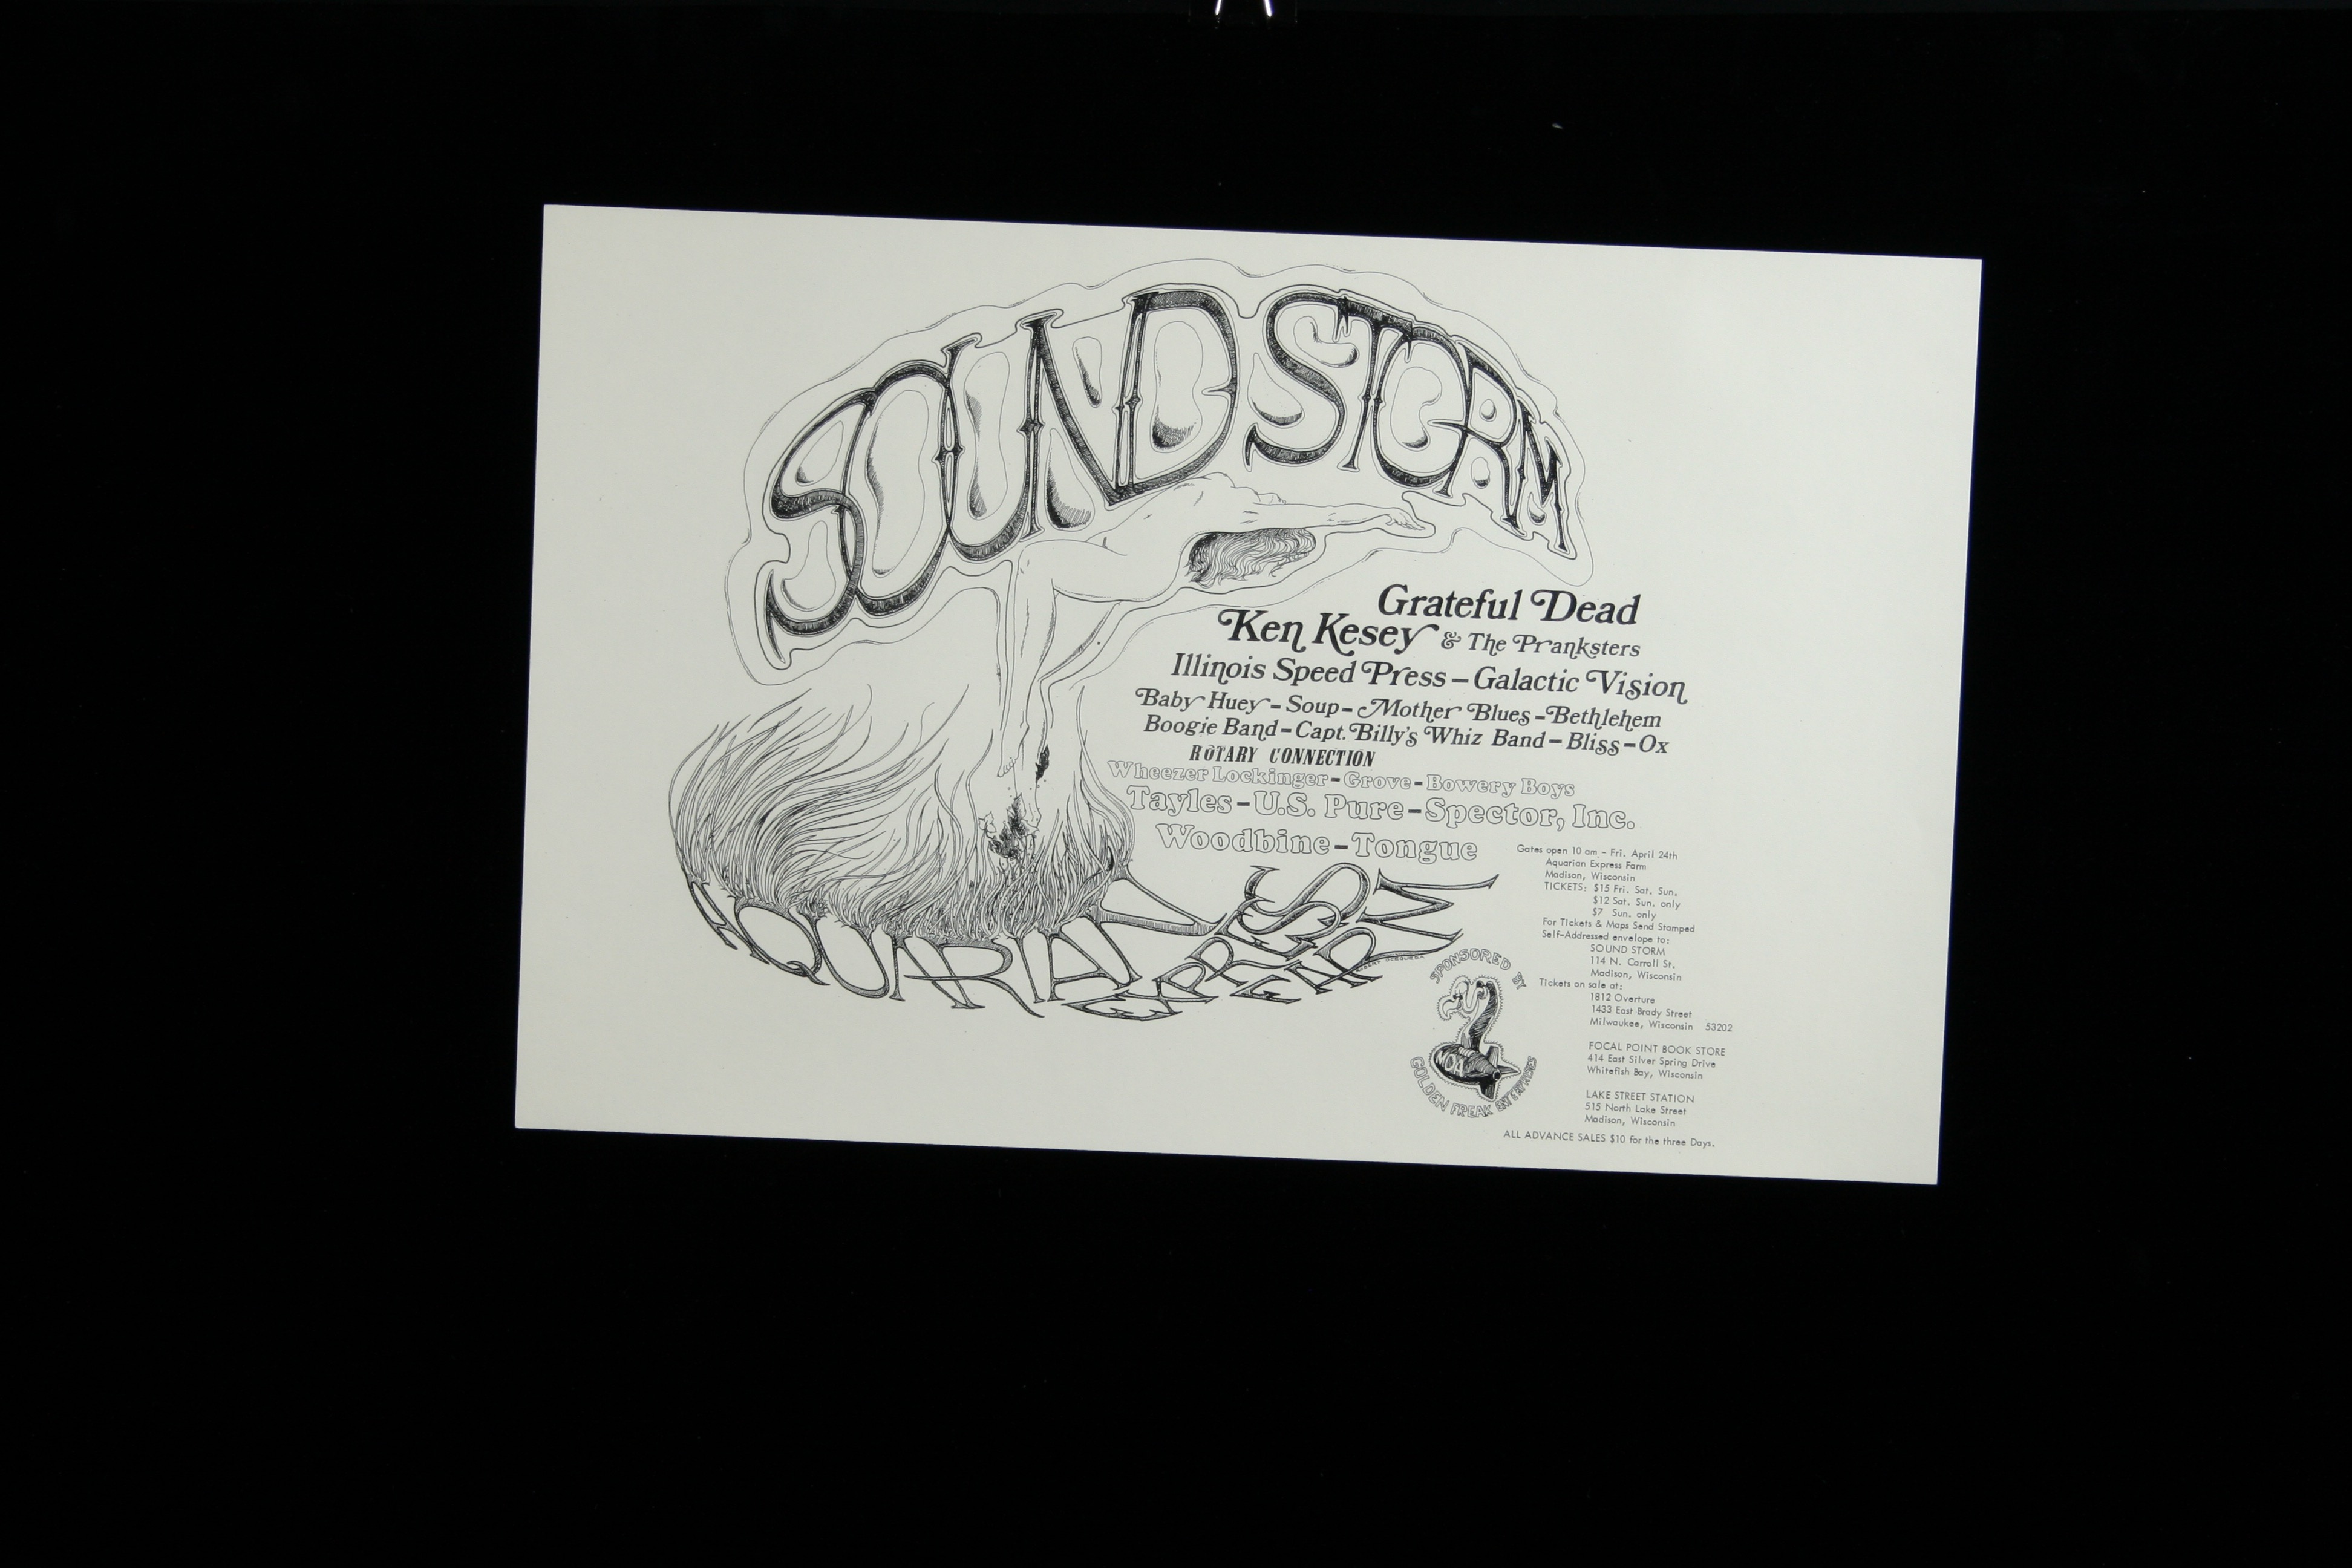 SOUND STORM
Grateful Dead
Ken Kesey & The Pranksters
Illinois Speed Press – Galactic Vision
Baby Huey – Soup – Mother Blues – Bethlehem
Boogie Band – Capt. Billy's Whiz Band – Bliss – Ox
ROTARY CONNECTION
Wheezer Lockinger – Grove – Bowery Boys
Tayles – U.S. Pure – Spector, Inc.
Woodbine – Tongue
AQUARIAN EXPRESS FARM
Gates open 10 am – Fri. April 24th
Aquarian Express Farm
Madison, Wisconsin
TICKETS: $15 Fri. Sat. Sun.
$12 Sat. Sun. only
$7 Sun. only
For Tickets & Maps Send Stamped
Self-Addressed envelope to:
SOUND STORM
114 N. Carroll St.
Madison, Wisconsin
Tickets on sale at:
1812 Overture
1433 East Brady Street
Milwaukee, Wisconsin 53202
FOCAL POINT BOOK STORE
414 East Silver Spring Drive
Whitefish Bay, Wisconsin
LAKE STREET STATION
515 North Lake Street
Madison, Wisconsin
ALL ADVANCE SALES $10 for the three Days.
SPONSORED BY
GOLDEN FREAK